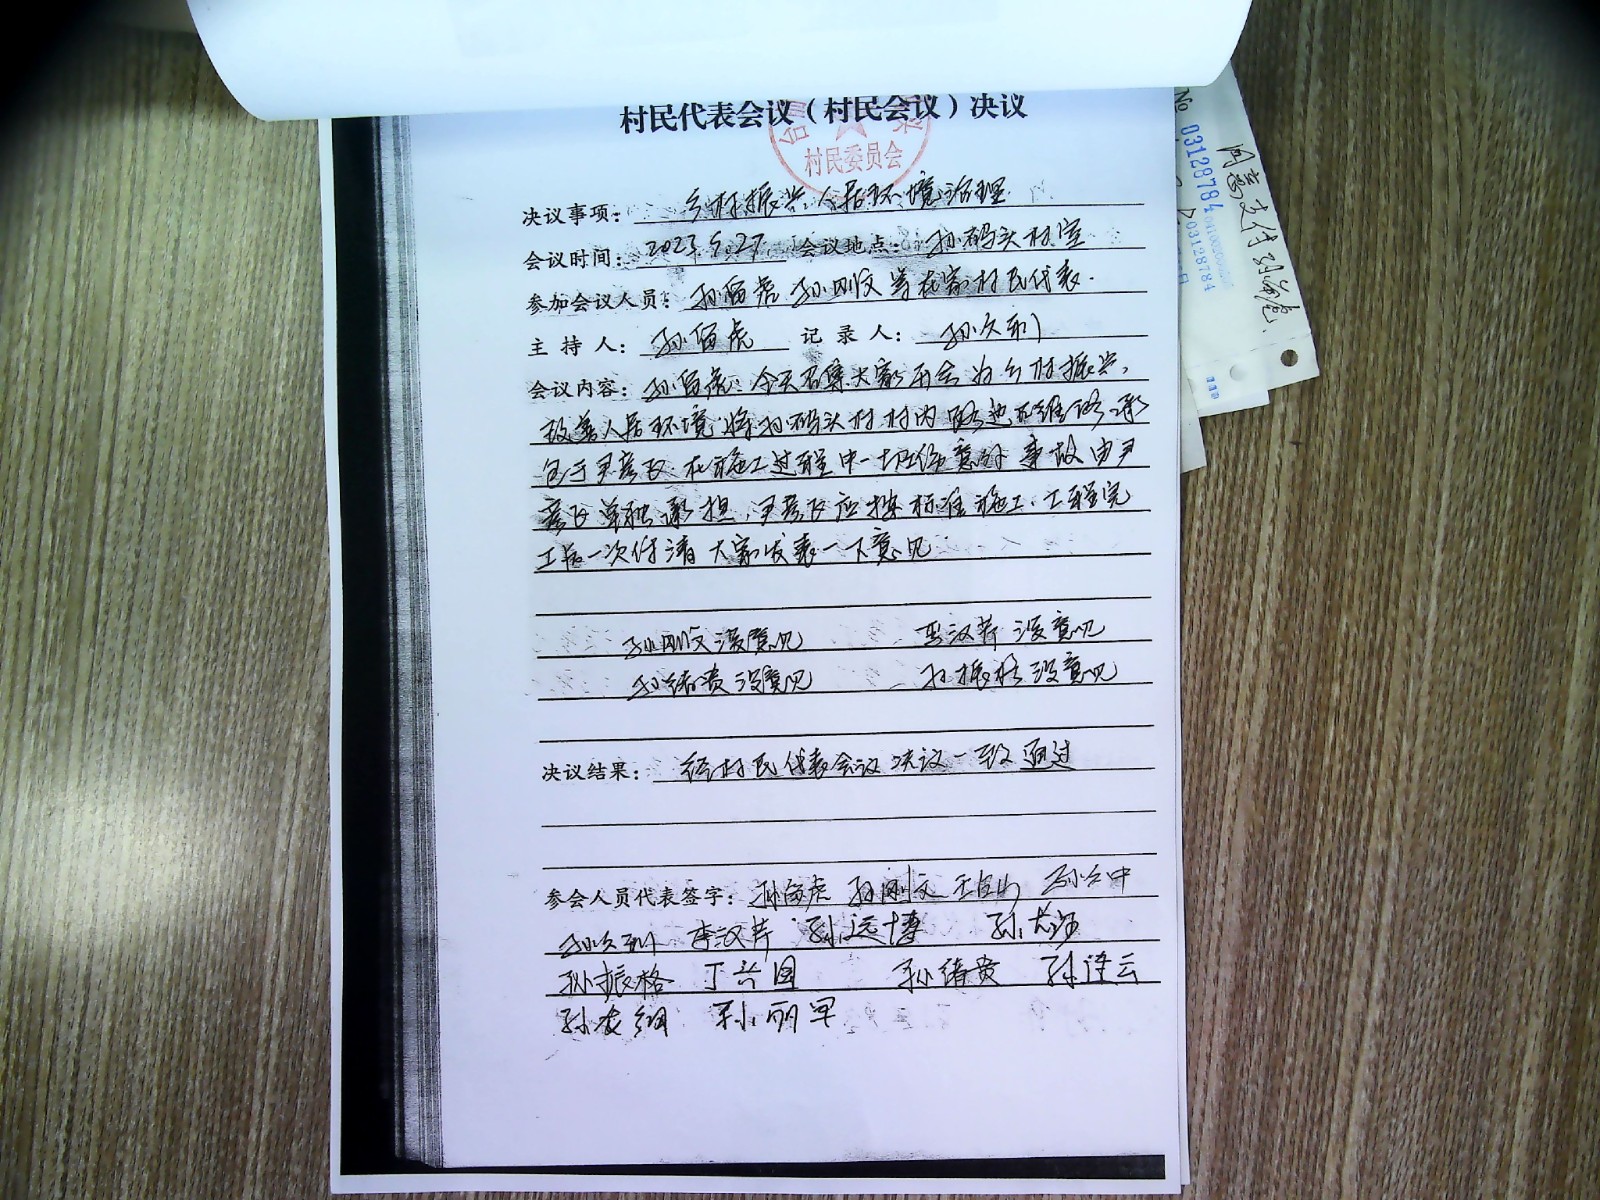 村民代表会议（村民会议）决议
村民委员会
决议事项： 乡村振兴人居环境治理
会议时间： 2023.5.27 会议地点： 孙码头村室
参加会议人员： 孙留虎 孙刚文等在家村民代表.
主持人： 孙留虎 记录人： 孙久利
会议内容： 孙留虎：今天召集大家开会为乡村振兴，
改善人居环境，将孙码头村村内路边 维修，承
包于尹彦 . 在施工过程中一切 意外事故由尹
彦 单独承担，尹彦 应按标准施工. 工程完
工后一次付清 大家发表一下意见
孙刚文 没意见 李汉芹 没意见
孙绪贵 没意见 孙振格 没意见
决议结果： 经村民代表会议决议一致通过
参会人员代表签字： 孙留虎 孙刚文 王 山 孙 中
孙久利 李汉芹 孙运博 孙
孙振格 丁兴国 孙绪贵 孙 云
孙 孙丽军
No 03128784
03128784
同意支付 孙留虎